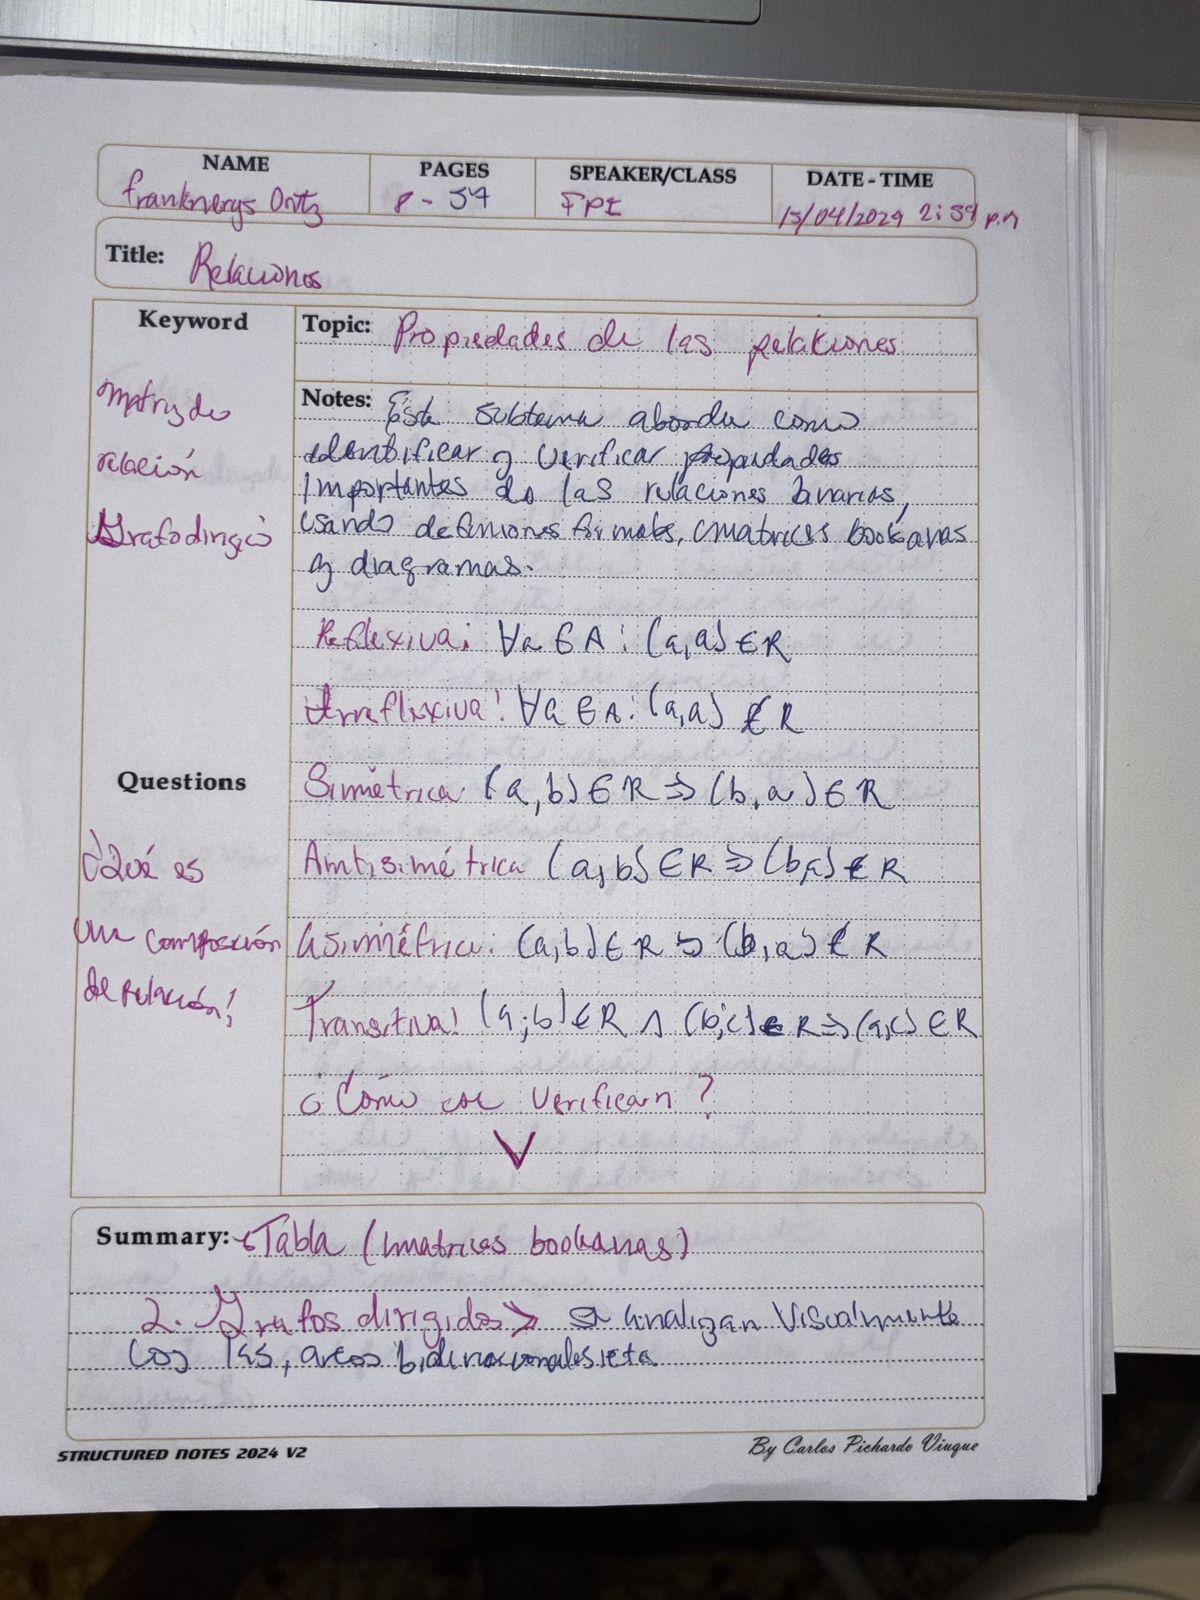 NAME PAGES SPEAKER/CLASS DATE - TIME
Franknerys Ortz 8 - 54 FPI 15/04/2029 2:59 p.m
Title: Relaciones
Keyword
Matriz de
relación
Grafo dirigio
Topic: Propiedades de las relaciones
Notes: Este subtema aborda como
identificar y verificar propiedades
importantes de las relaciones binarias,
usando definiones formales, matrices booleanas
y diagramas.
Reflexiva: ∀a ∈ A : (a,a) ∈ R
Irreflexiva: ∀a ∈ A : (a,a) ∉ R
Simétrica (a,b) ∈ R ⇒ (b,a) ∈ R
Antisimétrica (a,b) ∈ R ⇒ (b,a) ∉ R
Asimétrica: (a,b) ∈ R ⇒ (b,a) ∉ R
Transitiva: (a,b) ∈ R ∧ (b,c) ∈ R ⇒ (a,c) ∈ R
¿Cómo se verifican?
Questions
¿Qué es
una composición
de relación?
Summary: Tabla (matrices booleanas)
2. Grafos dirigidos > se analizan visualmente
los , arcos bidireccionales
STRUCTURED NOTES 2024 V2
By Carlos Pichardo Viuque